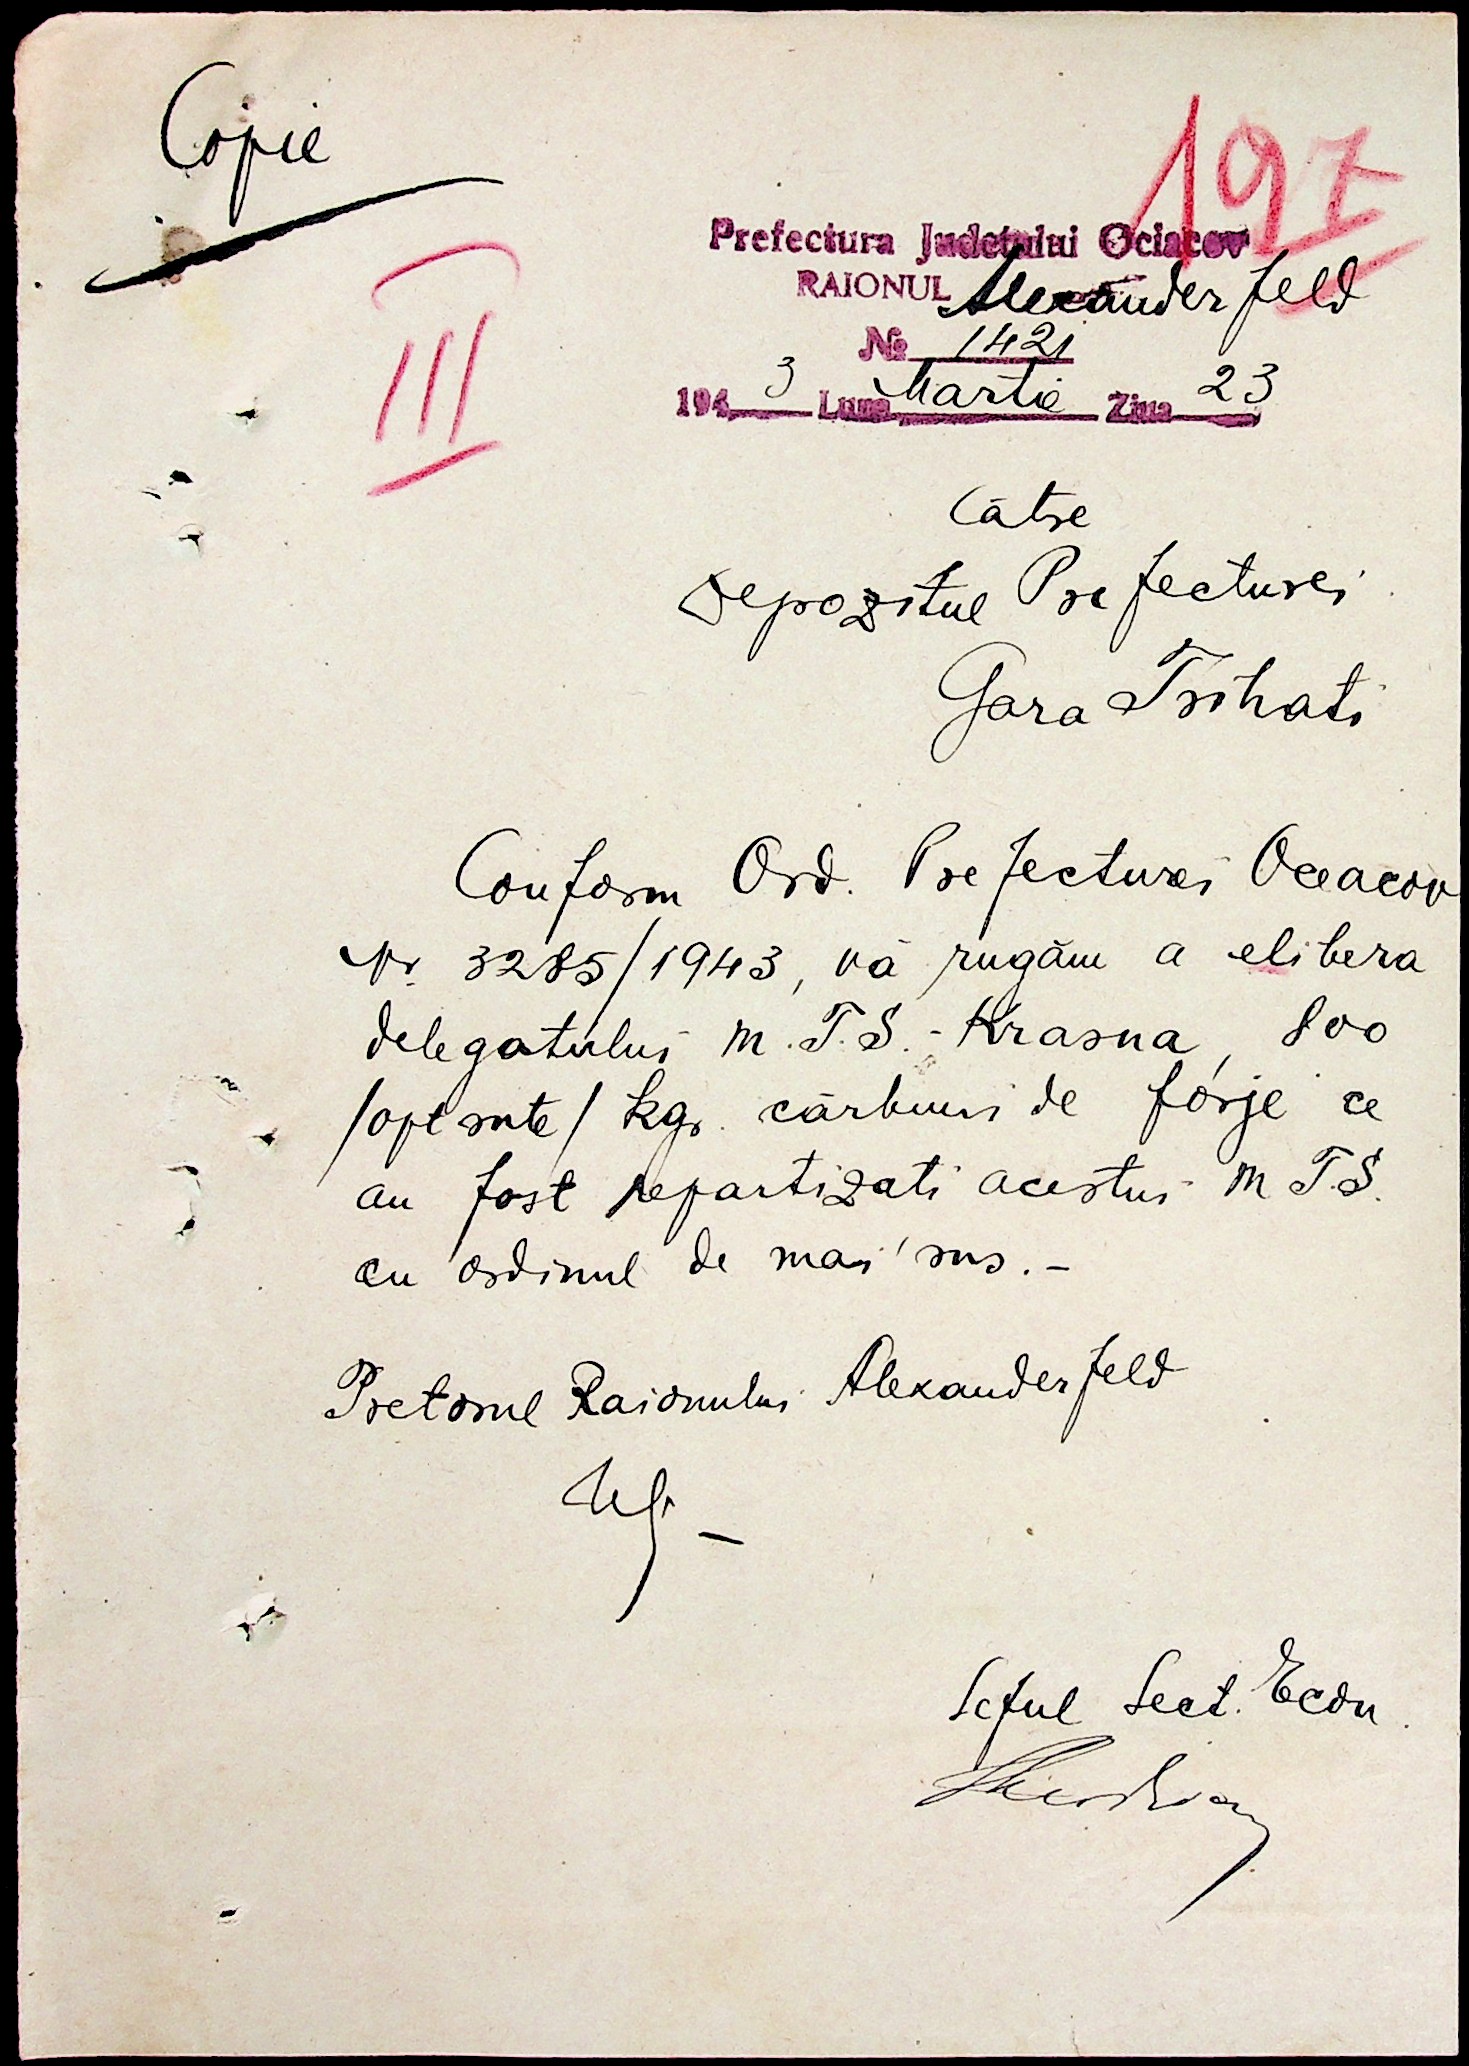 Copie
197
III
Prefectura Judetului Ociacov
RAIONUL Alexanderfeld
№ 1421
1943 Luna Martie Ziua 23
Către
Depozitul Prefecturei
Gara Trihati
Conform Ord. Prefecturei Oceacov
Nr. 3285/1943, vă rugăm a elibera
delegatului M.T.S. - Krasna, 800
/opt sute/ kgr. cărbuni de forje ce
au fost repartizati acestui M.T.S.
cu ordinul de mai sus. -
Pretorul Raionului Alexanderfeld
Seful Sect. Econ.